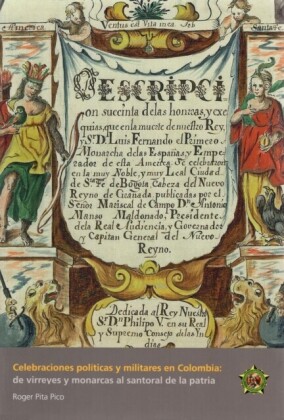 Ventus est Vita mea. Job
DESCRIPCI
on succinta de las honrras, y exe
quias, que en la muerte de nuestro Rey,
y Sr. Dn. Luis Fernando el Primero
Monarcha de las Españas, y Empe
rador de esta America. Se celebraron
en la muy Noble, y muy Leal Ciudad
de Sta. Fe de Bogota, Cabeza del Nuevo
Reyno de Granada. publicadas por el
Señor Mariscal de Campo Dn. Antonio
Manso Maldonado. Presidente
de la Real Audiencia, y Governador
y Capitan General del Nuevo
Reyno.
Dedicada al Rey Nuestro
Sr. Dn. Philipo V. en su Real
y Supremo Consejo de las Indias
Celebraciones políticas y militares en Colombia:
de virreyes y monarcas al santoral de la patria
Roger Pita Pico